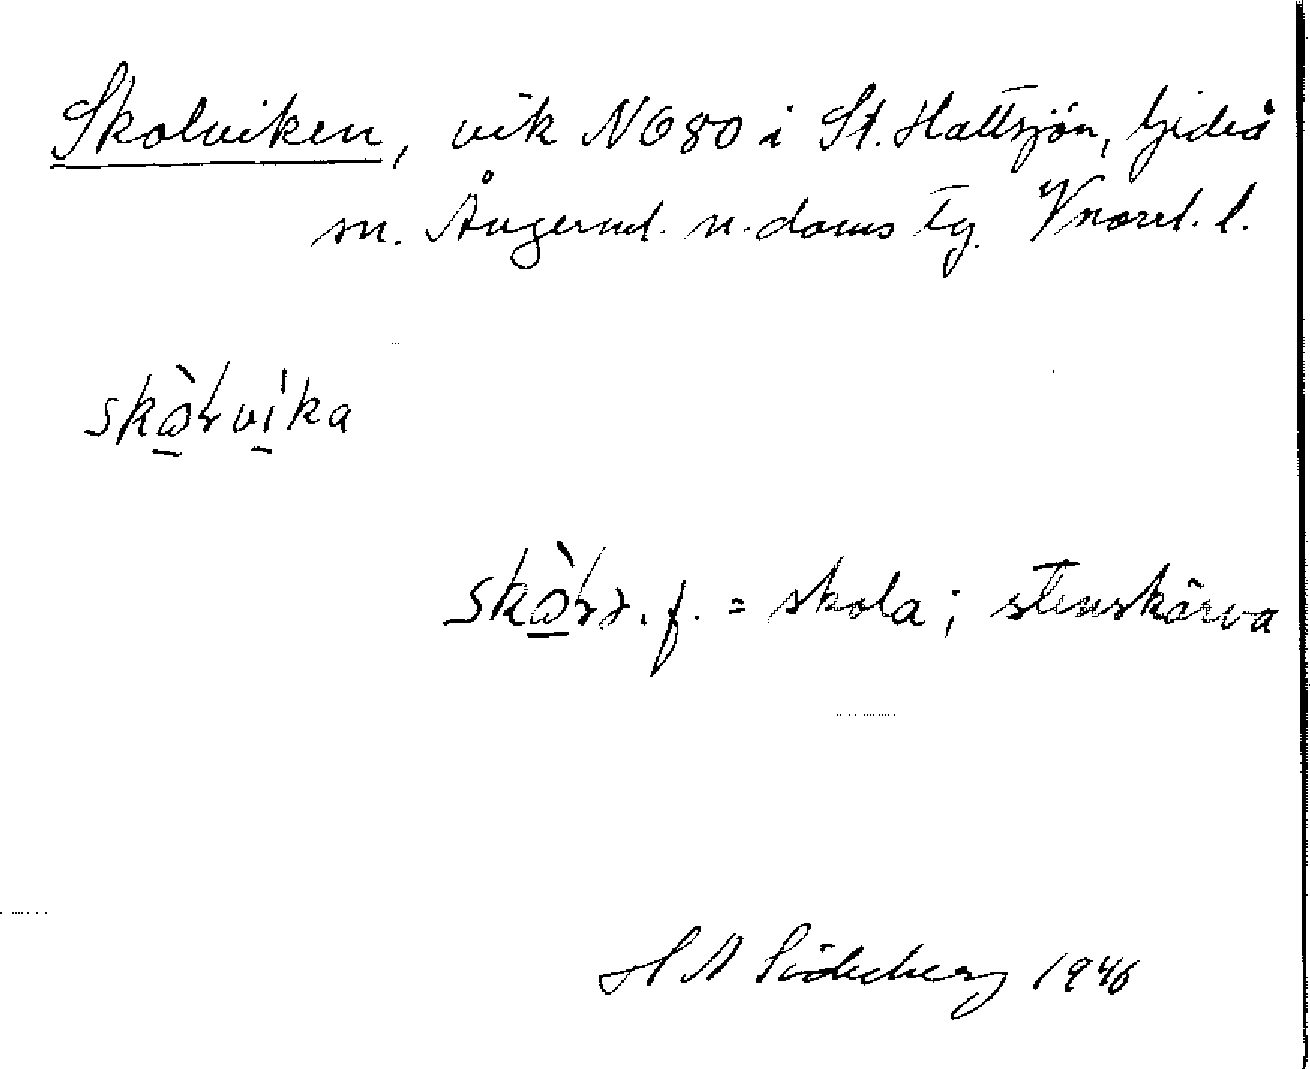 Skolviken, vik N680 i St. Hattsjön, Gideå
sn. Ångerml. n. doms tg. Vnorrl. l.
skàɽvi̍ka
skàɽə. f. = skola; stenskärva
H A Söderberg 1946